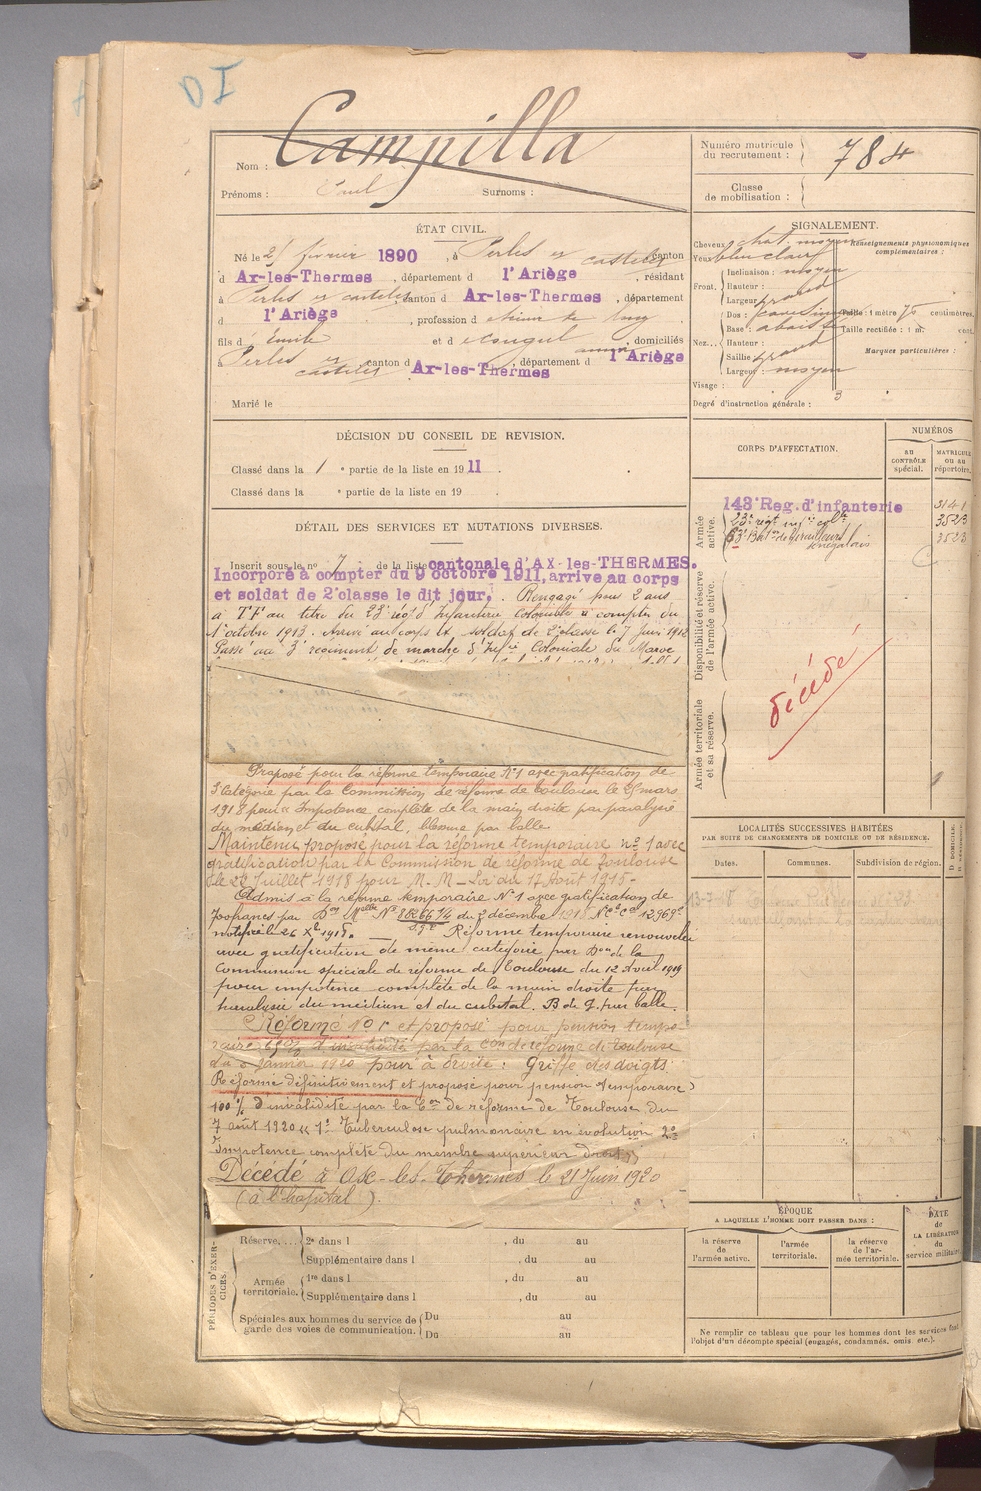 Nom : Campilla
Prénoms : Paul Surnoms :
Numéro matricule du recrutement : 784
Classe de mobilisation :
ÉTAT CIVIL.
Né le 25 février 1890, à Perles et castelet canton
d Ax-les-Thermes, département d l'Ariège, résidant
à Perles et castelet, canton d Ax-les-Thermes, département
d l'Ariège, profession d
fils d Emile et d , domiciliés
à Perles et castelet canton d Ax-les-Thermes, département d l'Ariège
Marié le
SIGNALEMENT.
Cheveux chat. moyen
Yeux bleu clair
Renseignements physionomiques complémentaires :
Front. Inclinaison : moyen
Hauteur :
Largeur : grand
Nez... Dos :
Base : abaissée
Hauteur :
Saillie : grand
Largeur : moyen
Taille : 1 mètre 75 centimètres.
Taille rectifiée : 1 m. cent.
Marques particulières :
Visage :
Degré d'instruction générale : 3
DÉCISION DU CONSEIL DE REVISION.
Classé dans la 1 e partie de la liste en 1911.
Classé dans la e partie de la liste en 19 .
DÉTAIL DES SERVICES ET MUTATIONS DIVERSES.
Inscrit sous le n° 7 de la liste cantonale d'AX-les-THERMES.
Incorporé à compter du 9 octobre 1911, arrive au corps
et soldat de 2e classe le dit jour. Rengagé pour 2 ans
à TF au titre du 23e rég. d'Infanterie Coloniale à compter du
1er octobre 1913. Arrivé au corps et soldat de 2e classe le 7 Juin 191
Passé au 3e régiment de marche d'Infie Coloniale du Maroc
Proposé pour la réforme temporaire N°1 avec gratification de
Catégorie par la Commission de réforme de Toulouse le 25 mars
1918 pour « Impotence complète de la main droite par paralysie
du médian et du cubital, blessure par balle
Maintenu proposé pour la réforme temporaire n° 1 avec
gratification par la Commission de réforme de Toulouse
le 26 Juillet 1918 pour M. M - Loi du 17 Août 1915-
Admis à la réforme temporaire N°1 avec gratification de
francs par Don Melle N° 88266 du 2 décembre 1918 12969
notifiée le 26 Xbre 1918. — Réforme temporaire renouvelée
avec gratification de même catégorie par Don de la
Commission spéciale de réforme de Toulouse du 12 Avril 1919
pour impotence complète de la main droite par
paralysie du médian et du cubital. B de g. par balle.
Réformé N° 1 et proposé pour pension tempo-
raire 65% d'invalidité par la Con de réforme de Toulouse
du Janvier 1920 pour à droite : Griffe des doigts.
Réformé définitivement et proposé pour pension temporaire
100% d'invalidité par la Con de réforme de Toulouse du
7 août 1920 « 1° Tuberculose pulmonaire en évolution 2°
Impotence complète du membre supérieur droit »
Décédé à Ax-les-Thermes le 21 Juin 1920
(à l'hôpital).
CORPS D'AFFECTATION.
NUMÉROS
AU CONTRÔLE spécial.
MATRICULE OU AU répertoire.
Armée active.
143e Reg. d'infanterie 3141
23e régt infie colle 3523
3e Baton de tirailleurs sénégalais 3523
Disponibilité et réserve de l'armée active.
décédé
Armée territoriale et sa réserve.
LOCALITÉS SUCCESSIVES HABITÉES
PAR SUITE DE CHANGEMENTS DE DOMICILE OU DE RÉSIDENCE.
Dates. Communes. Subdivision de région.
13-7-18
ÉPOQUE
A LAQUELLE L'HOMME DOIT PASSER DANS :
la réserve de l'armée active.
l'armée territoriale.
la réserve de l'armée territoriale.
DATE de LA LIBÉRATION du service militaire
PÉRIODES D'EXERCICES.
Réserve.... 2e dans l , du au
Supplémentaire dans l , du au
Armée territoriale. 1re dans l , du au
Supplémentaire dans l , du au
Spéciales aux hommes du service de garde des voies de communication. Du au
Du au
Ne remplir ce tableau que pour les hommes dont les services font
l'objet d'un décompte spécial (engagés, condamnés, omis, etc.).